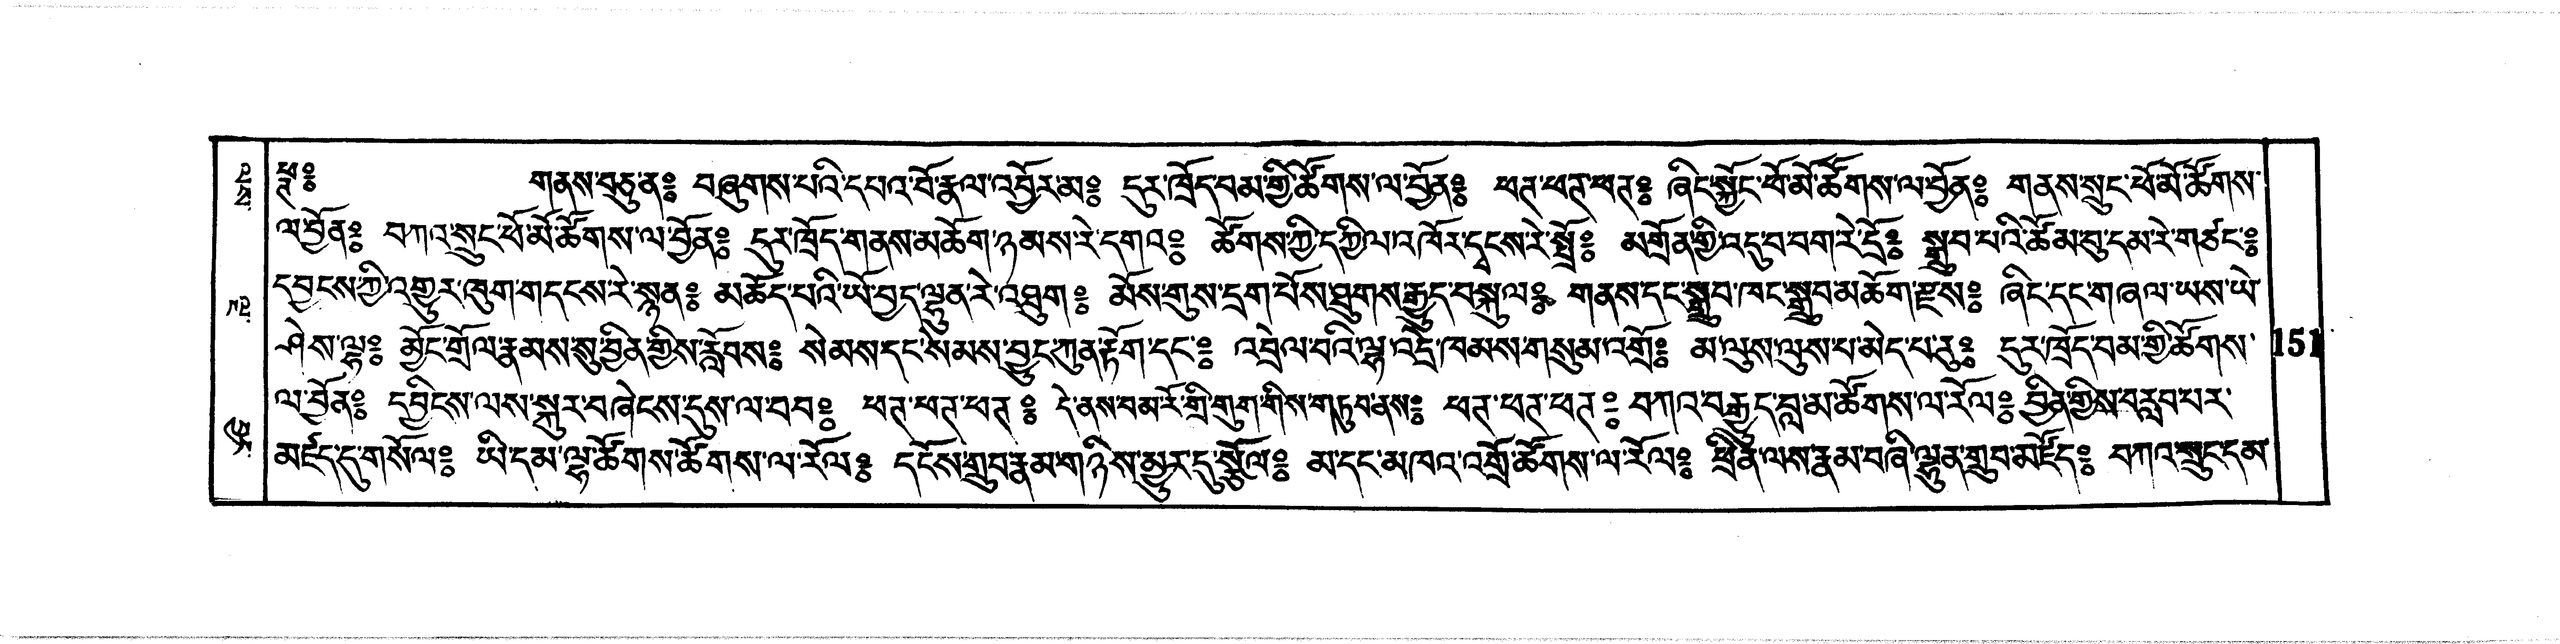 ཕཊ༔ གནས་བཅུ་ན༔ བཞུགས་པའི་དཔའ་བོ་རྣལ་འབྱོར་མ༔ དུར་ཁྲོད་བམ་གྱི་ཚོགས་ལ་བྱོན༔ ཕཊ་ཕཊ་ཕཊ༔ ཞིང་སྐྱོང་ཕོ་མོ་ཚོགས་ལ་བྱོན༔ གནས་སྲུང་ཕོ་མོ་ཚོགས་
ལ་བྱོན༔ བཀའ་སྲུང་ཕོ་མོ་ཚོགས་ལ་བྱོན༔ དུར་ཁྲོད་གནས་མཆོག་ཉམས་རེ་དགའ༔ ཚོགས་ཀྱི་དཀྱིལ་འཁོར་དྭངས་རེ་སྤྲོ༔ མགྲོན་གྱི་འདུ་བ་བག་རེ་དྲོ༔ སྒྲུབ་པའི་ཚོམ་བུ་དམ་རེ་གཙང༔
དབྱངས་ཀྱི་འགྱུར་ཁུག་གདངས་རེ་སྙན༔ མཆོད་པའི་ཡོ་བྱད་ལྷུན་རེ་འཐུག༔ མོས་གུས་དྲག་པོས་ཐུགས་རྒྱུད་བསྐུལ༔ གནས་དང་སྒྲུབ་ཁང་སྒྲུབ་མཆོག་རྫས༔ ཞིང་དང་གཞལ་ཡས་ཡེ་
ཤེས་ལྷ༔ མྱོང་གྲོལ་རྣམས་སུ་བྱིན་གྱིས་རློབས༔ སེམས་དང་སེམས་བྱུང་ཀུན་རྟོག་དང༔ འབྲེལ་བའི་ལྷ་འདྲེ་ཁམས་གསུམ་འགྲོ༔ མ་ལུས་ལུས་པ་མེད་པ་རུ༔ དུར་ཁྲོད་བམ་གྱི་ཚོགས་
ལ་བྱོན༔ དབྱིངས་ལས་སྐུར་བཞེངས་དུས་ལ་བབ༔ ཕཊ་ཕཊ་ཕཊ༔ དེ་ནས་བམ་རོ་གྲི་གུག་གིས་གཏུབ་ནས༔ ཕཊ་ཕཊ་ཕཊ༔ བཀའ་བརྒྱུད་བླ་མ་ཚོགས་ལ་རོལ༔ བྱིན་གྱིས་བརླབ་པར་
མཛད་དུ་གསོལ༔ ཡི་དམ་ལྷ་ཚོགས་ཚོགས་ལ་རོལ༔ དངོས་གྲུབ་རྣམ་གཉིས་མྱུར་དུ་སྩོལ༔ མ་དང་མཁའ་འགྲོ་ཚོགས་ལ་རོལ༔ ཕྲིན་ལས་རྣམ་བཞི་ལྷུན་གྲུབ་མཛོད༔ བཀའ་སྲུང་དམ་
151